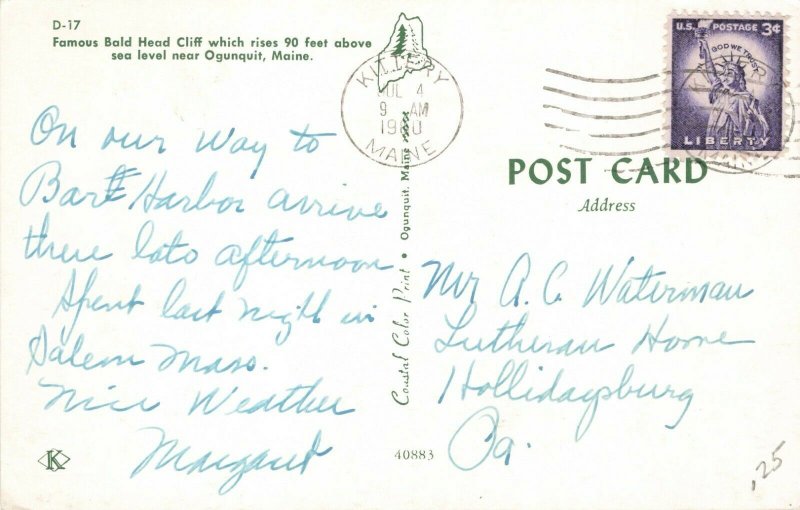 D-17
Famous Bald Head Cliff which rises 90 feet above
sea level near Ogunquit, Maine.
KITTERY
JUL 4
9 AM
MAINE
U.S. POSTAGE 3¢
IN GOD WE TRUST
LIBERTY
On our way to
Bar Harbor arrive
there late afternoon
Spent last night in
Salem Mass.
Nice Weather
Margaret
K
POST CARD
Address
Mr A. C. Waterman
Lutheran Home
Hollidaysburg
Pa.
Coastal Color Print • Ogunquit, Maine
40883
.25